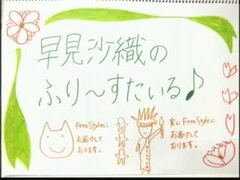 早見沙織の
ふり〜すたいる♪
FreeStyleに
お届けして
おります。
FreeStyleに
お届けして
おります。